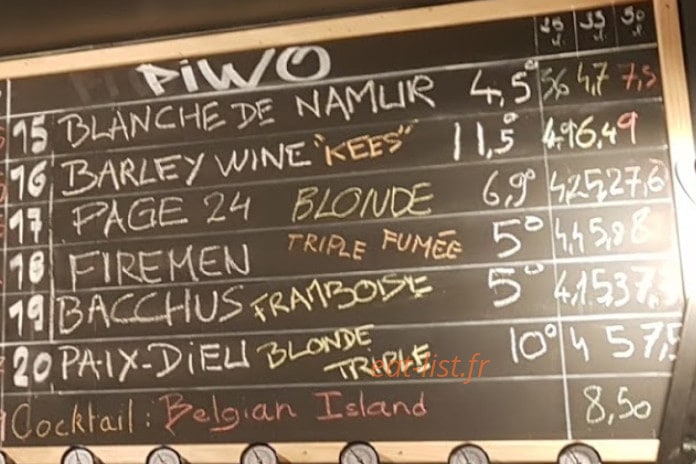 25 33 50
PiWO
15 BLANCHE DE NAMUR 4,5° 36 4,7 7,5
16 BARLEY WINE "KEES" 11,5° 4,9 6,4 9
17 PAGE 24 BLONDE 6,9° 4,2 5,2 7,6
18 FIREMEN TRIPLE FUMÉE 5° 4,4 5,9 8
19 BACCHUS FRAMBOISE 5° 4,1 5,3 7,5
20 PAIX-DiEU BLONDE TRIPLE 10° 4 5 7,5
eat-list.fr
Cocktail : Belgian Island 8,50